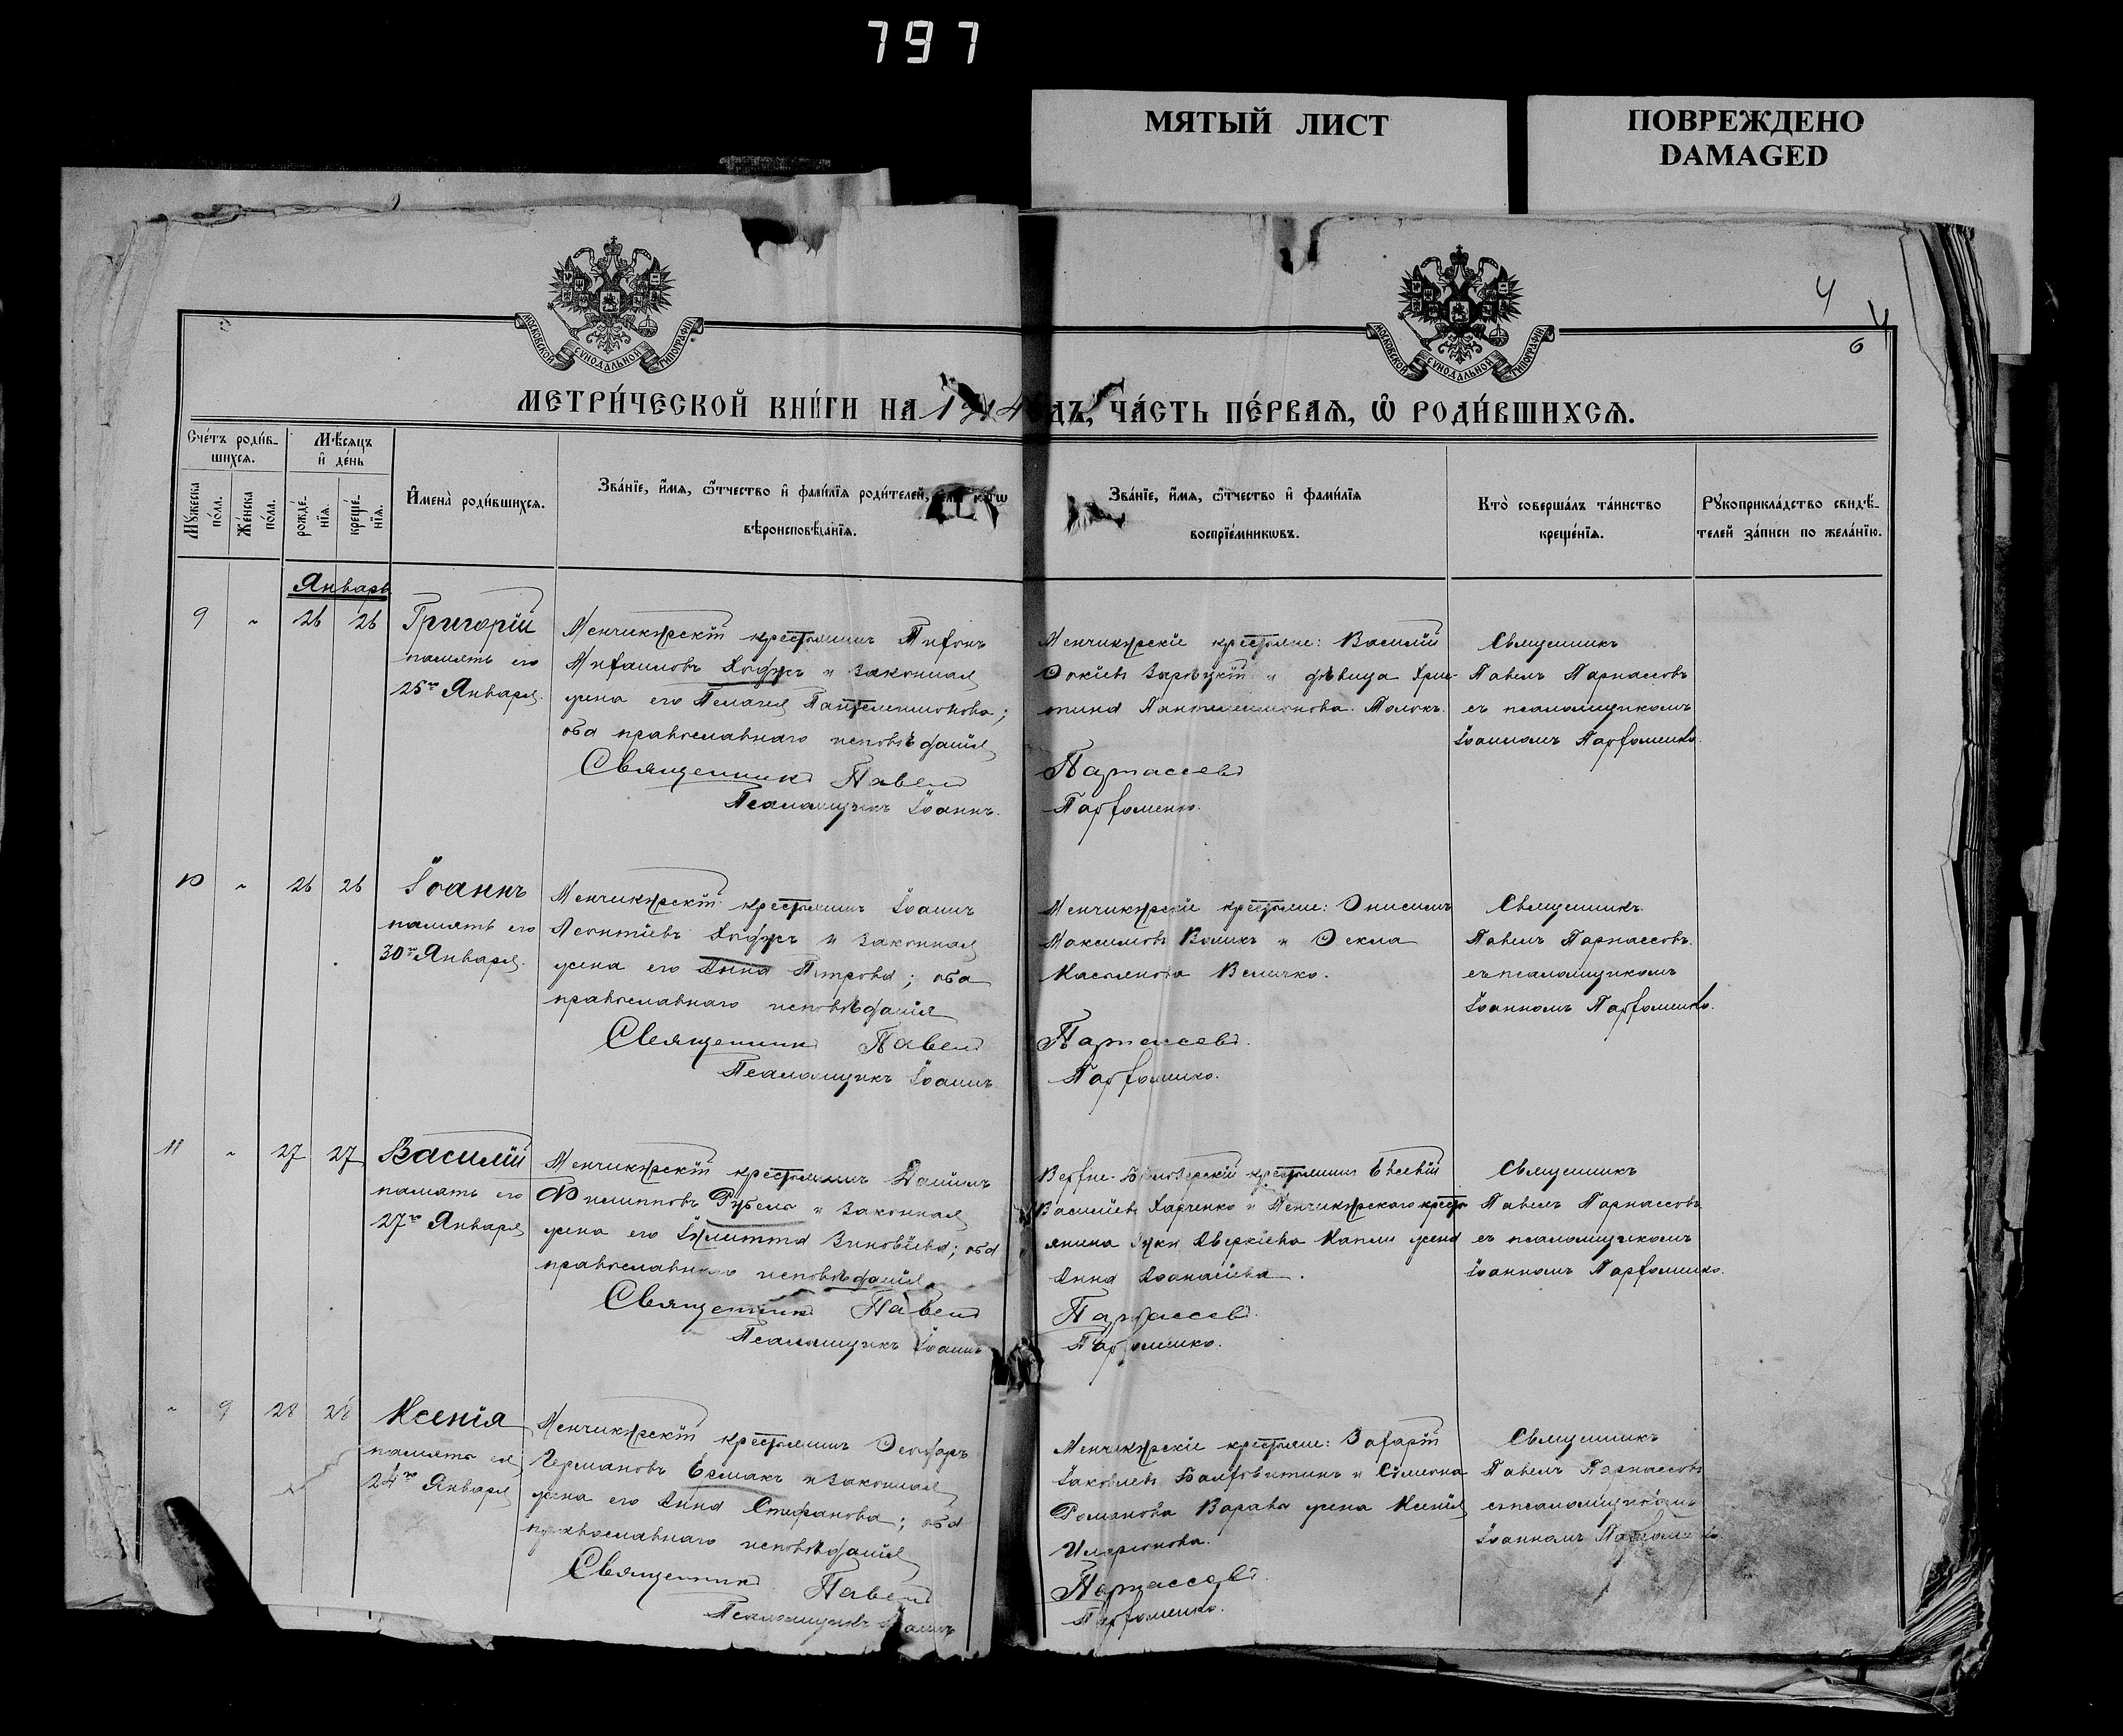 797
МЯТЫЙ ЛИСТ
ПОВРЕЖДЕНО
DAMAGED
МОСКОВСКОЙ СУНОДАЛЬНОЙ ТИПОГРАФІИ
МОСКОВСКОЙ СУНОДАЛЬНОЙ ТИПОГРАФІИ
4
6
МЕТРИ́ЧЕСКОЙ КНИ́ГИ НА 1914 ДЪ, ЧА́СТЬ ПЕ́РВАѦ, Ѡ РОДИ́ВШИХСѦ.
Сче́тъ роди́в-
шихсѧ.
Мѣсѧцъ
и де́нь
Мꙋжеска
по́ла.
Же́нска
по́ла.
рожде́-
нїѧ.
креще́-
нїѧ.
Имена̀ роди́вшихсѧ.
Зва́нїе, и́мѧ, ѻ́тчество и фами́лїѧ роди́телей,
вѣроисповѣ́данїѧ.
Зва́нїе, и́мѧ, ѻ́тчество и фами́лїѧ
воспрїе́мникѡвъ.
Кто̀ соверша́лъ та́инство
креще́нїѧ.
Рꙋкоприкла́дство свидѣ́-
телей за́писи по жела́нїю.
Январь
9 " 26 26
Григорій
память его
25го Января.
Менчикурскій крестьянинъ Тихонъ
Михаиловъ и законная
жена его Пелагея Пантелеимонова;
оба православнаго исповѣданія
Священникъ Павелъ
Псаломщикъ Іоаннъ
Менчикурскіе крестьяне: Василій
Зарѣцкій и дѣвица Хрис-
тина Пантелеимонова
Парнассовъ
Парфоменко.
Священникъ
Павелъ Парнассовъ
съ псаломщикомъ
Іоанномъ Парфоменко.
10 " 26 26
Іоаннъ
память его
30го Января.
Менчикурскій крестьянинъ Іоаннъ
Леонтіевъ и законная
жена его Анна Петрова; оба
православнаго исповѣданія
Священникъ Павелъ
Псаломщикъ Іоаннъ
Менчикурскіе крестьяне: Онисимъ
Максимовъ Воликъ и Ѳекла
Касьянова Величко.
Парнассовъ.
Парфоменко.
Священникъ
Павелъ Парнассовъ.
съ псаломщикомъ
Іоанномъ Парфоменко.
11 " 27 27
Василій
память его
27го Января
Менчикурскій крестьянинъ Даніилъ
Филипповъ и законная
жена его Іулитта Зиновіева; оба
православнаго исповѣданія
Священникъ Павелъ
Псаломщикъ Іоаннъ
Верхне-Бѣлозерскій крестьянинъ Евсевій
Васильевъ Харченко и Менчикурскаго кресть
янина Луки Аверкіева жена
Анна Аѳанасіева.
Парнассовъ
Парфоменко.
Священникъ
Павелъ Парнассовъ
съ псаломщикомъ
Іоанномъ Парфоменко.
" 9 28 28
Ксенія
память ея
24го Января
Менчикурскій крестьянинъ Ѳеодоръ
Германовъ Ермакъ и законная
жена его Анна Стефанова; оба
православнаго исповѣданія
Священникъ Павелъ
Псаломщикъ Іоаннъ
Менчикурскіе крестьяне: Захарій
Іаковлевъ и Симеона
Романова Варава жена Ксенія
Иларіонова.
Парнассовъ.
Парфоменко.
Священникъ
Павелъ Парнассовъ
съ псаломщикомъ
Іоанномъ Парфоменко.